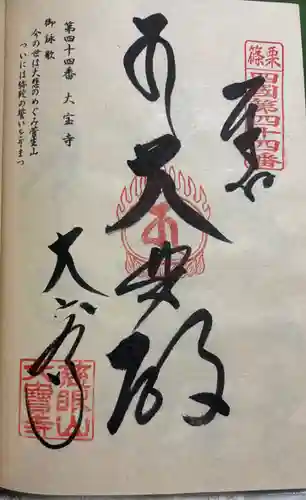 栗篠
四國第四十四番
奉
大悲殿
大宝寺
菅生山
大寳寺
第四十四番 大宝寺
御詠歌
今の世は大悲のめぐみ菅生山
ついには弥陀の誓いをぞまつ